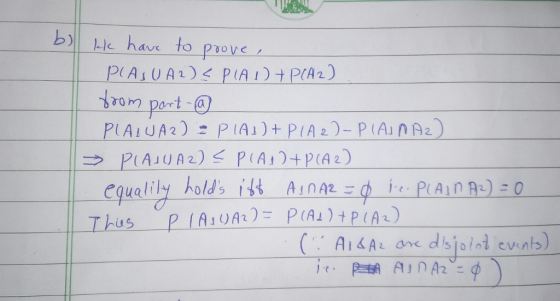 b) We have to prove,
P(A1∪A2) ≤ P(A1)+P(A2)
from part-ⓐ
P(A1∪A2) = P(A1)+P(A2)-P(A1∩A2)
⇒ P(A1∪A2) ≤ P(A1)+P(A2)
equality holds iff A1∩A2 = ϕ i.e. P(A1∩A2)=0
Thus P(A1∪A2)= P(A1)+P(A2)
(∵ A1 & A2 are disjoint events)
i.e. A1∩A2 = ϕ)